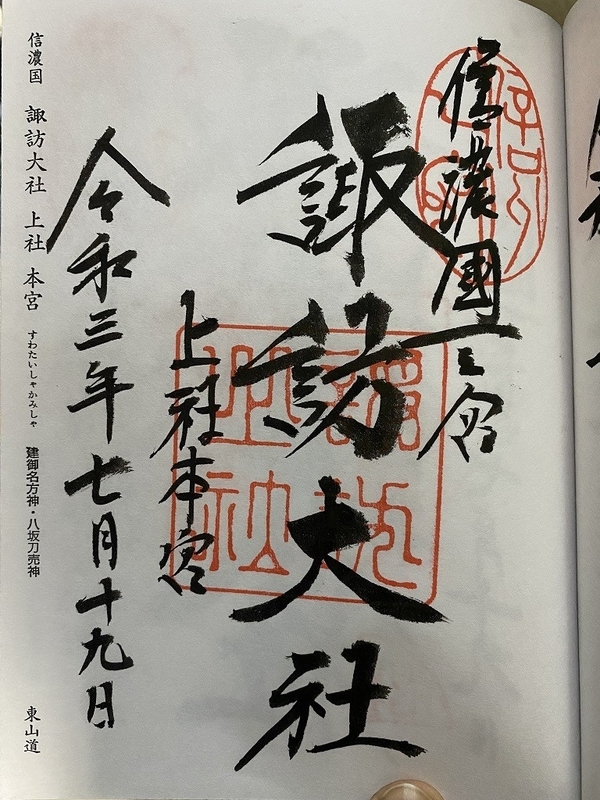 信濃國一之宮
諏訪大社
上社本宮
令和三年七月十九日
信濃国 諏訪大社 上社 本宮 すわたいしゃかみしゃ 建御名方神・八坂刀売神 東山道